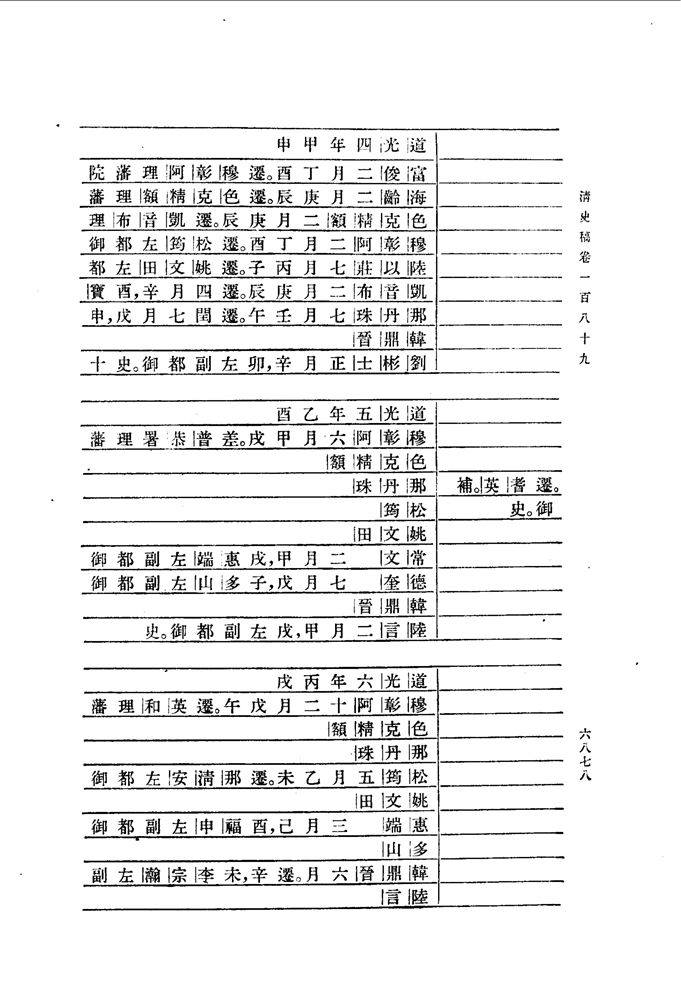 清史稿卷一百八十九
道光四年甲申
富俊二月丁酉遷。穆彰阿理藩院
海齡二月庚辰遷。色克精額理藩
色克精額二月庚辰遷。凱音布理
穆彰阿二月丁酉遷。松筠左都御
陸以莊七月丙子遷。姚文田左都
凱音布二月庚辰遷。四月辛酉,寶
那丹珠七月壬午遷。閏七月戊申,
韓鼎晉
劉彬士正月辛卯,左副都御史。十
道光五年乙酉
穆彰阿六月甲戌差。普恭署理藩
色克精額
遷。耆英補。
那丹珠
御史。
松筠
姚文田
常文二月甲戌,惠端左副都御
德奎七月戊子,多山左副都御
韓鼎晉
陸言二月甲戌,左副都御史。
道光六年丙戌
穆彰阿十二月戊午遷。英和理藩
色克精額
那丹珠
松筠五月乙未遷。那清安左都御
姚文田
惠端三月己酉,福申左副都御
多山
韓鼎晉六月遷。辛未,李宗瀚左副
陸言
六八七八